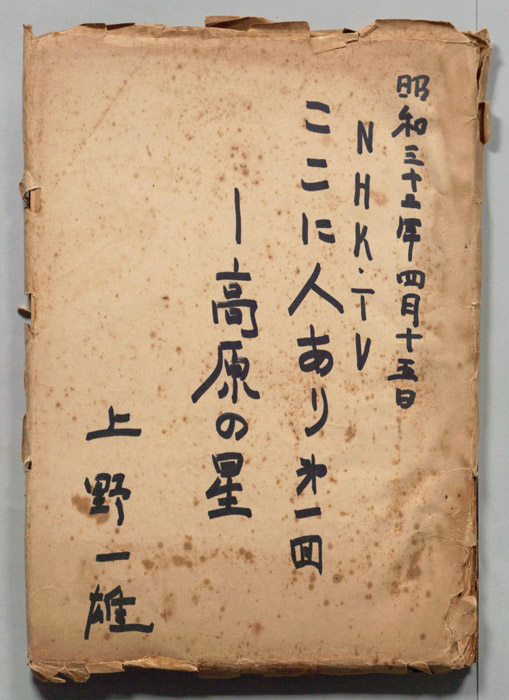 昭和三十二年四月十五日
NHK・TV
ここに人あり 第一回
―高原の星
上野一雄